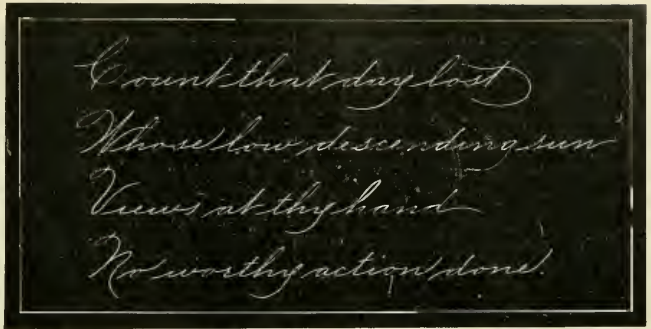 Count that day lost
Whose low descending sun
Views at thy hand
No worthy action done.